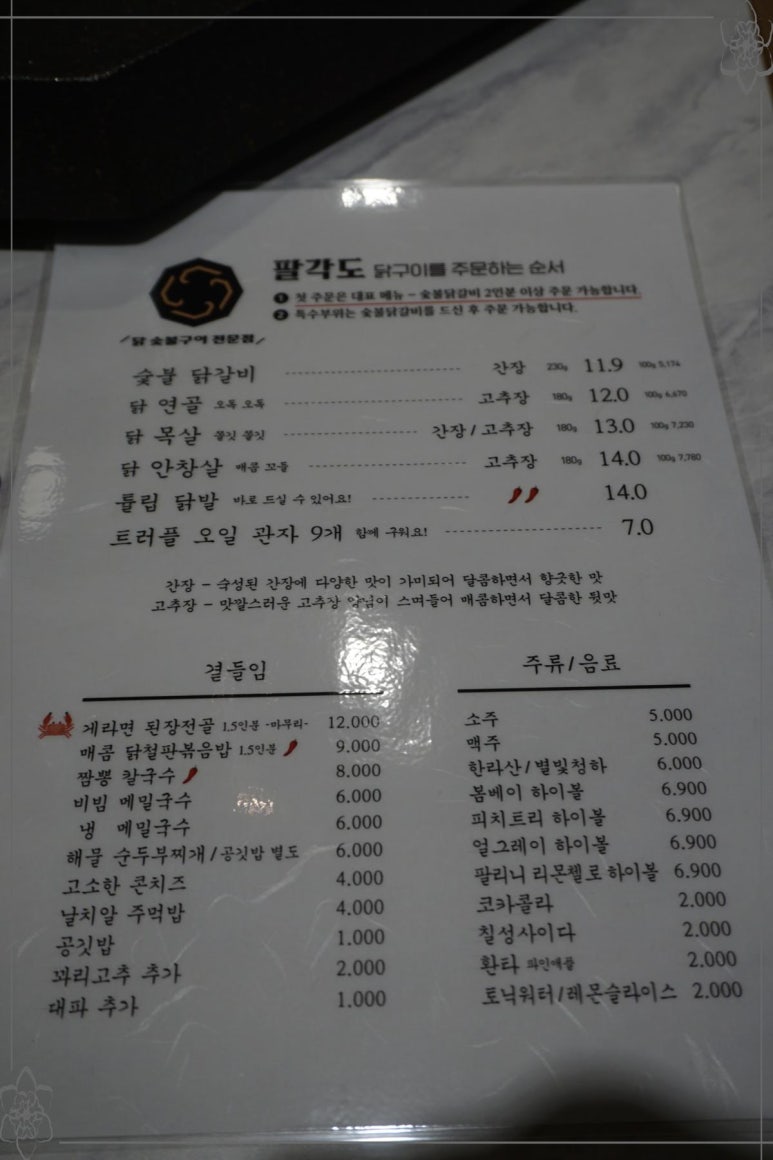 팔각도 닭구이를 주문하는 순서
❶ 첫 주문은 대표 메뉴 - 숯불닭갈비 2인분 이상 주문 가능합니다.
❷ 특수부위는 숯불닭갈비를 드신 후 주문 가능합니다.
닭 숯불구이 전문점
숯불 닭갈비 간장 230g 11.9 100g 5,174
닭 연골 오독 오독 고추장 180g 12.0 100g 6,670
닭 목살 쫄깃 쫄깃 간장/고추장 180g 13.0 100g 7,230
닭 안창살 매콤 꼬들 고추장 180g 14.0 100g 7,780
튤립 닭발 바로 드실 수 있어요! 14.0
트러플 오일 관자 9개 함께 구워요! 7.0
간장 - 숙성된 간장에 다양한 맛이 가미되어 달콤하면서 향긋한 맛
고추장 - 맛깔스러운 고추장 양념이 스며들어 매콤하면서 달콤한 뒷맛
곁들임
게라면 된장전골 1.5인분 -마무리- 12.000
매콤 닭철판볶음밥 1.5인분 9.000
짬뽕 칼국수 8.000
비빔 메밀국수 6.000
냉 메밀국수 6.000
해물 순두부찌개/공깃밥 별도 6.000
고소한 콘치즈 4.000
날치알 주먹밥 4.000
공깃밥 1.000
꽈리고추 추가 2.000
대파 추가 1.000
주류/음료
소주 5.000
맥주 5.000
한라산/별빛청하 6.000
봄베이 하이볼 6.900
피치트리 하이볼 6.900
얼그레이 하이볼 6.900
팔리니 리몬첼로 하이볼 6.900
코카콜라 2.000
칠성사이다 2.000
환타 파인애플 2.000
토닉워터/레몬슬라이스 2.000